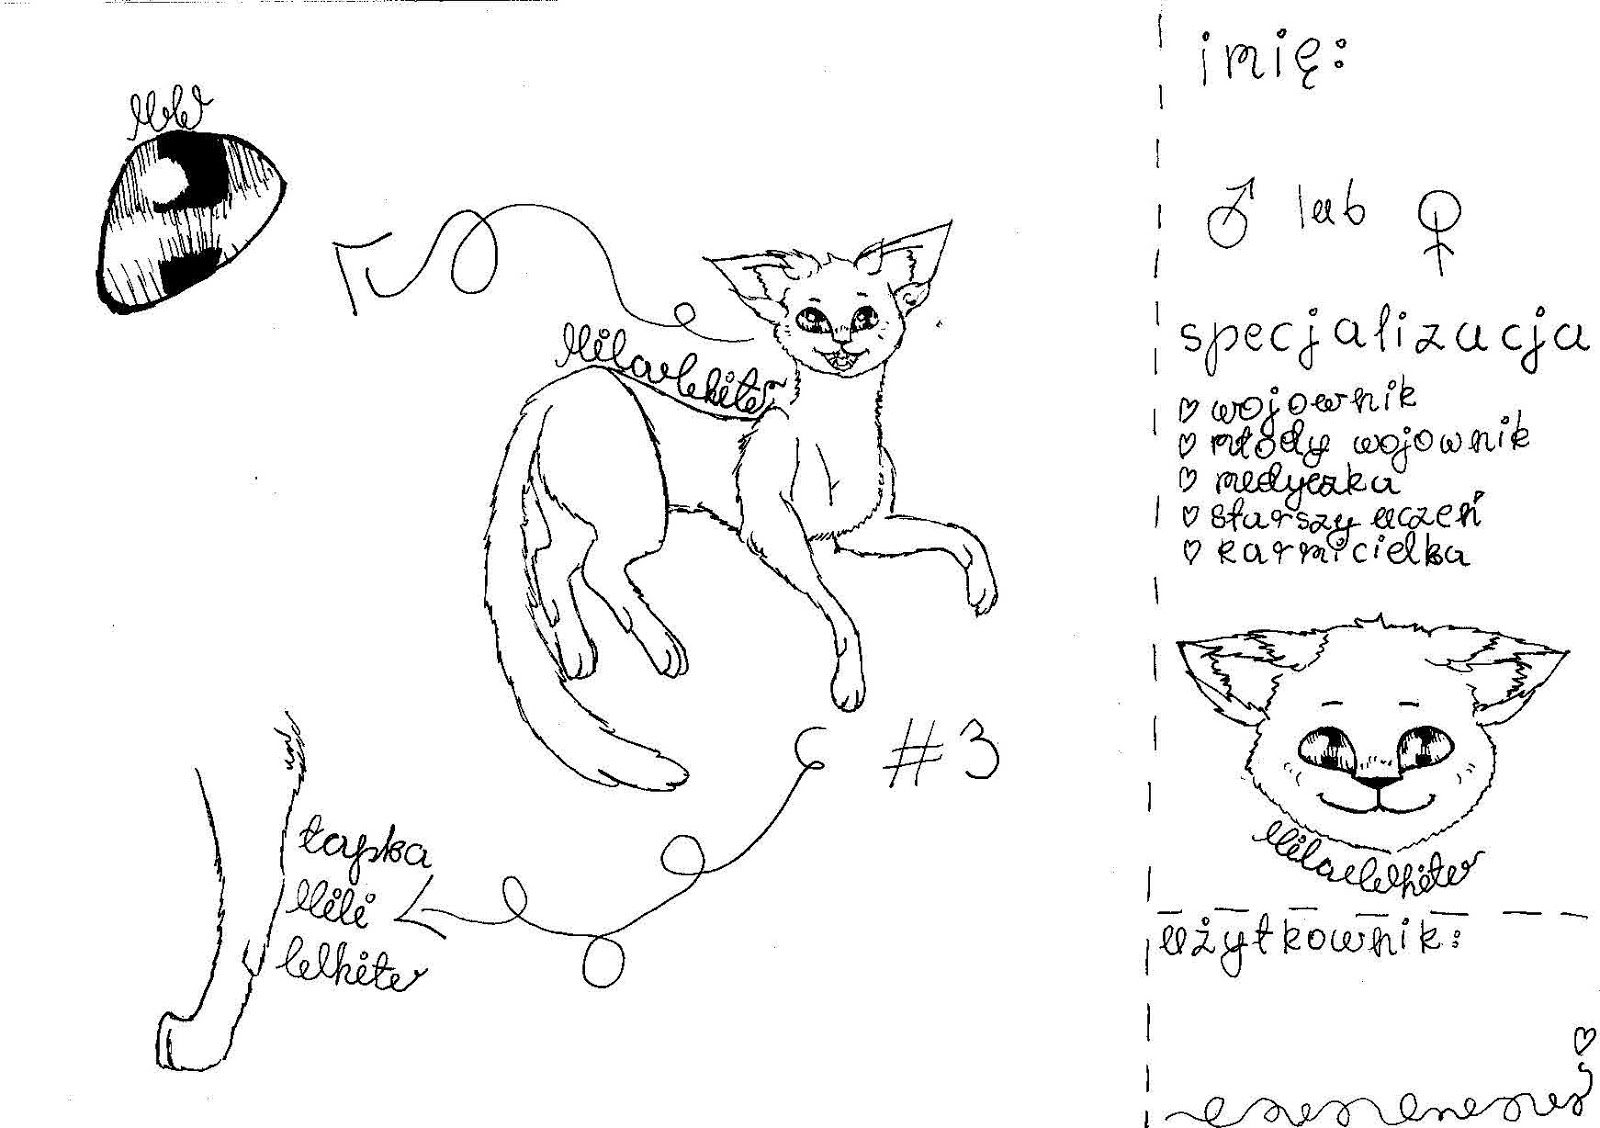 MW
MilaWhite
#3
łapka
Mili
White
imię:
♂ lub ♀
specjalizacja
♡ wojownik
♡ młody wojownik
♡ medyczka
♡ starszy uczeń
♡ karmicielka
MilaWhite
użytkownik: